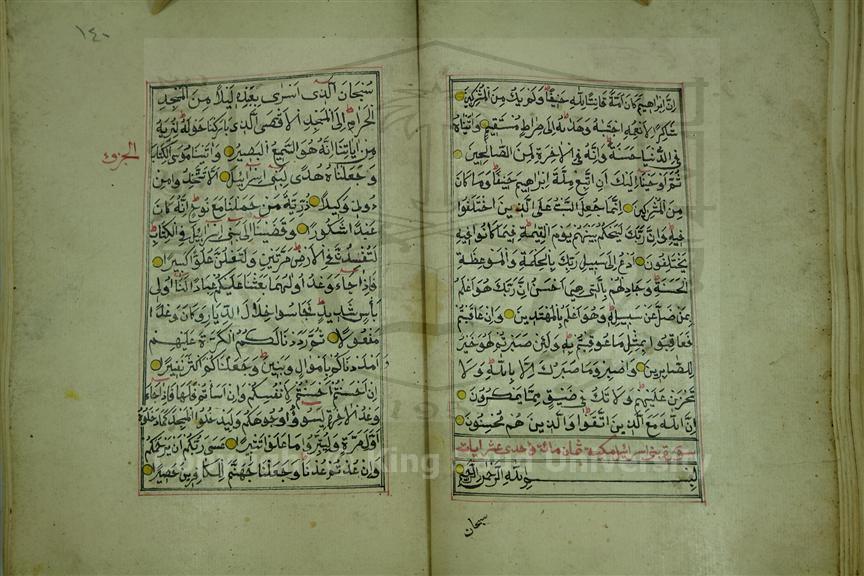 ان ابراهيم كان امة قانتا لله حنيفا ولم يك من المشركين
شاكرا لانعمه اجتبه وهديه الى صراط مستقيم واتيناه
في الدنيا حسنة وانه في الاخرة لمن الصالحين
ثم اوحينا اليك ان اتبع ملة ابراهيم حنيفا وما كان
من المشركين انما جعل السبت على الذين اختلفوا
فيه وان ربك ليحكم بينهم يوم القيمة فيما كانوا فيه
يختلفون ادع الى سبيل ربك بالحكمة والموعظة
الحسنة وجادلهم بالتي هي احسن ان ربك هو اعلم
بمن ضل عن سبيله وهو اعلم بالمهتدين وان عاقبتم
فعاقبوا بمثل ما عوقبتم به ولئن صبرتم لهو خير
للصابرين واصبر وما صبرك الا بالله ولا
تحزن عليهم ولا تك في ضيق مما يمكرون
ان الله مع الذين اتقوا والذين هم محسنون
سورة بني اسرائيل مكية مائة واحدى عشر ايات
بسم الله الرحمن الرحيم
سبحان
١٤٠
سبحان الذي اسرى بعبده ليلا من المسجد
الحرام الى المسجد الاقصى الذي باركنا حوله لنريه
من اياتنا انه هو السميع البصير واتينا موسى الكتاب
وجعلناه هدى لبني اسرائيل الا تتخذوا من
دوني وكيلا ذرية من حملنا مع نوح انه كان
عبدا شكورا وقضينا الى بني اسرائيل في الكتاب
لتفسدن في الارض مرتين ولتعلن علوا كبيرا
فاذا جاء وعد اوليهما بعثنا عليكم عبادا لنا اولي
باس شديد فجاسوا خلال الديار وكان وعدا
مفعولا ثم رددنا لكم الكرة عليهم
وامددناكم باموال وبنين وجعلناكم اكثر نفيرا
ان احسنتم احسنتم لانفسكم وان اسأتم فلها فاذا جاء
وعد الاخرة ليسوؤا وجوهكم وليدخلوا المسجد كما دخلوه
اول مرة وليتبروا ما علوا تتبيرا عسى ربكم ان يرحمكم
وان عدتم عدنا وجعلنا جهنم للكافرين حصيرا
الجزو
King Saud University